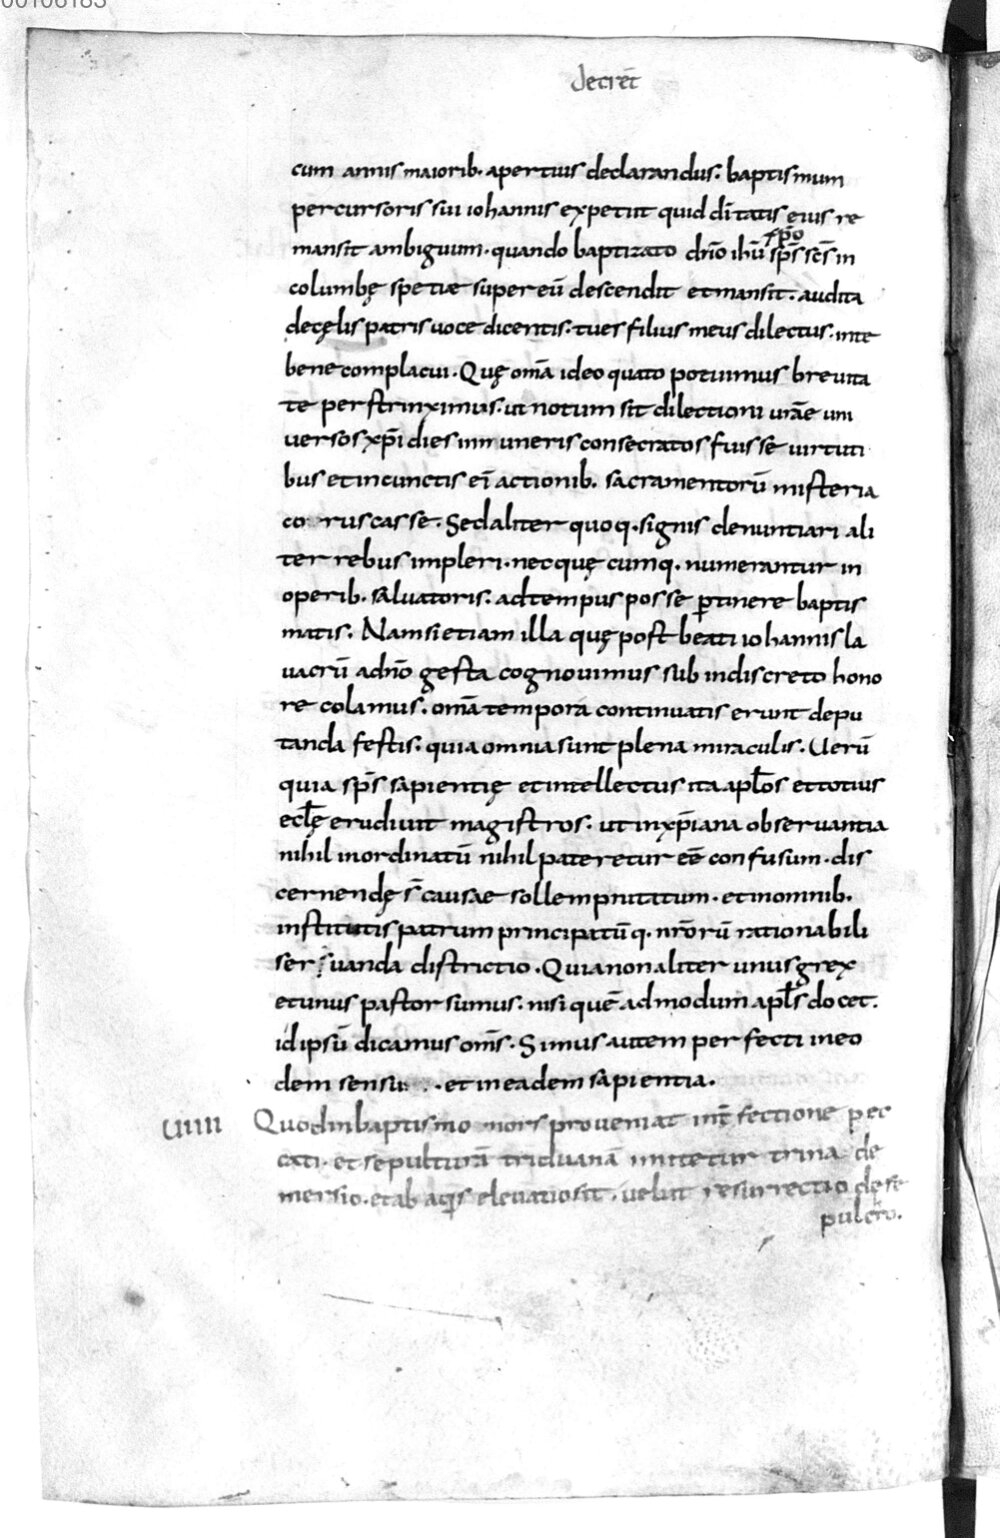 00106183
decret̄
cum annis maiorib· apertius declarandus· baptismum
percursoris sui iohannis expetiit quid diīt̄atis eius re
mansit ambiguum· quando baptizato dn̄o ih̄u xp̄o sp̄s sc̄s in
columbę spetiae super eū descendit et mansit· audita
de cęlis patris uoce dicentis· tu es filius meus dilectus· in te
bene complacui· Quę om̄a ideo quāto potuimus breuita
te perstrinximus· ut notum sit dilectioni ur̄ae uni
uersos xp̄i dies innumeris consecratos fuisse uirtuti
bus et in cunctis ei̅ actionib· sacramentorū misteria
corruscasse· Sed aliter quoq· signis denuntiari ali
ter rebus impleri· nec quę cumq· numerantur in
operib· saluatoris· ad tempus posse ꝑtinere baptis
matis· Nam si etiam illa quę post beati iohannis la
uacrū a dn̄o gesta cognouimus sub indiscreto hono
re colamus· om̄a tempora continuatis erunt depu
tanda festis· quia omnia sunt plena miraculis· Uerū
quia sp̄s sapientię et intellectus ita apl̄os et totius
ecl̄ę erudiuit magistros· ut in xp̄iana obseruantia
nihil inordinatū nihil pateretur eē confusum· dis
cernendę s̄ causae sollempnitatum· et in omnib·
institutis patrum principatūq· nr̄orū rationabili
ser uanda districtio· Quia non aliter unus grex
et unus pastor sumus· nisi quē ad modum apl̄s docet·
id ipsū dicamus om̄s· Simus autem perfecti in eo
dem sensu · et in eadem sapientia·
UIIII Quod in baptismo mors proueniat int̄fectione pec
cati· et sepulturā triduanā imitetur trina de
mersio· et ab aq̄s eleuatio sit· uelut resurrectio de se
pulcro·